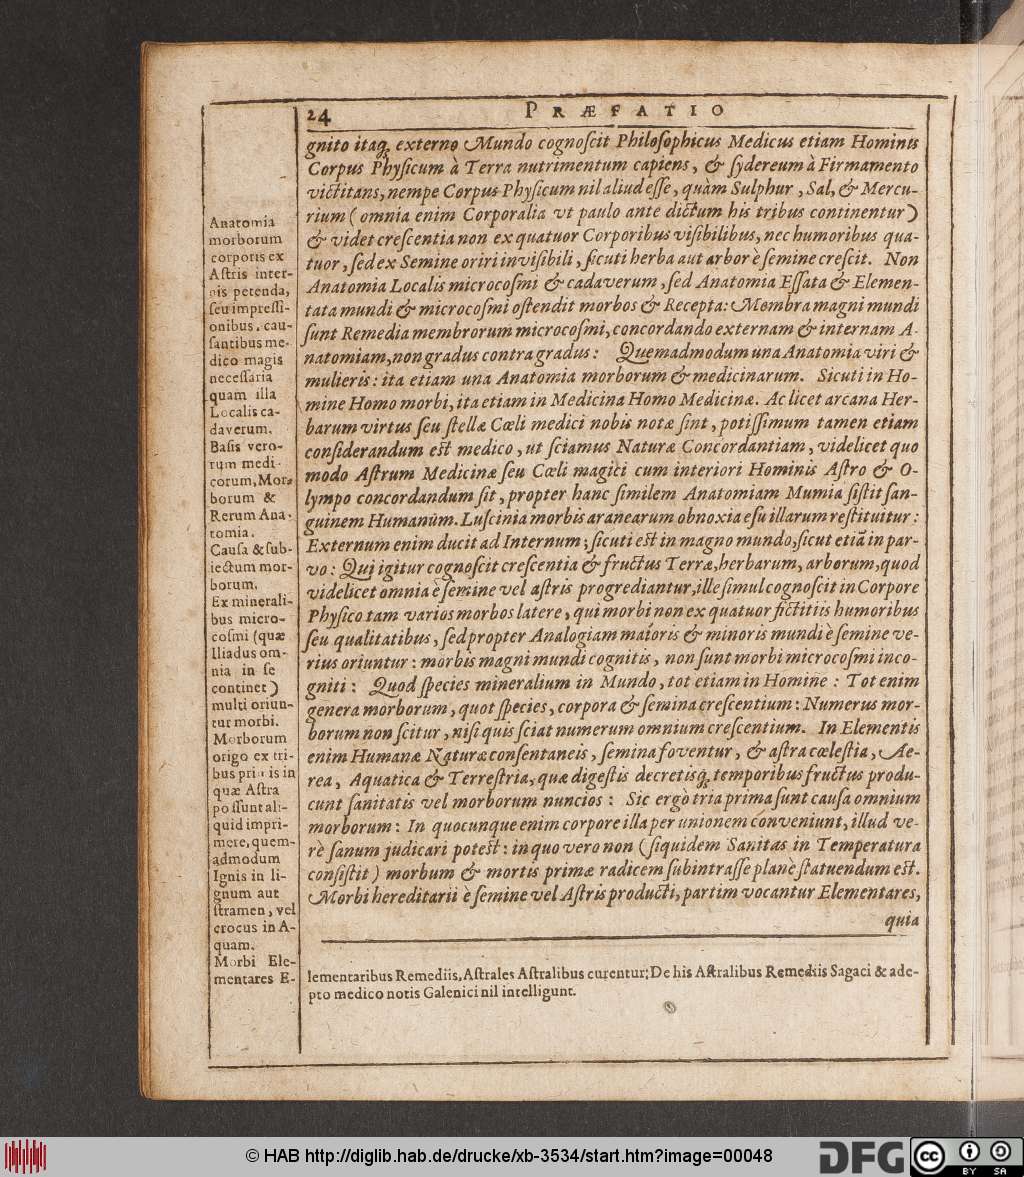 24 PRÆFATIO
gnito itaq; externo Mundo cognoſcit Philoſophicus Medicus etiam Hominis
Corpus Phyſicum à Terra nutrimentum capiens, & ſydereum à Firmamento
victitans, nempe Corpus Phyſicum nil aliud eſſe, quàm Sulphur, Sal, & Mercu-
rium (omnia enim Corporalia vt paulo ante dictum his tribus continentur)
& videt creſcentia non ex quatuor Corporibus viſibilibus, nec humoribus qua-
tuor, ſed ex Semine oriri inviſibili, ſicuti herba aut arbor è ſemine creſcit. Non
Anatomia Localis microcoſmi & cadaverum, ſed Anatomia Eſſata & Elemen-
tata mundi & microcoſmi oſtendit morbos & Recepta: Membra magni mundi
ſunt Remedia membrorum microcoſmi, concordando externam & internam A-
natomiam, non gradus contra gradus: Quemadmodum una Anatomia viri &
mulieris: ita etiam una Anatomia morborum & medicinarum. Sicuti in Ho-
mine Homo morbi, ita etiam in Medicina Homo Medicinæ. Ac licet arcana Her-
barum virtus ſeu ſtellæ Cœli medici nobis notæ ſint, potiſſimum tamen etiam
conſiderandum eſt medico, ut ſciamus Naturæ Concordantiam, videlicet quo
modo Aſtrum Medicinæ ſeu Cœli magici cum interiori Hominis Aſtro & O-
lympo concordandum ſit, propter hanc ſimilem Anatomiam Mumia ſiſtit ſan-
guinem Humanum. Luſcinia morbis aranearum obnoxia eſu illarum reſtituitur:
Externum enim ducit ad Internum; ſicuti eſt in magno mundo, ſicut etiã in par-
vo: Qui igitur cognoſcit creſcentia & fructus Terræ, herbarum, arborum, quod
videlicet omnia è ſemine vel aſtris progrediantur, ille ſimul cognoſcit in Corpore
Phyſico tam varios morbos latere, qui morbi non ex quatuor fictitiis humoribus
ſeu qualitatibus, ſed propter Analogiam maioris & minoris mundi è ſemine ve-
rius oriuntur: morbis magni mundi cognitis, non ſunt morbi microcoſmi inco-
gniti: Quod ſpecies mineralium in Mundo, tot etiam in Homine: Tot enim
genera morborum, quot ſpecies, corpora & ſemina creſcentium: Numerus mor-
borum non ſcitur, niſi quis ſciat numerum omnium creſcentium. In Elementis
enim Humanæ Naturæ conſentaneis, ſemina foventur, & aſtra cœleſtia, Ae-
rea, Aquatica & Terreſtria, quæ digeſtis decretisq; temporibus fructus produ-
cunt ſanitatis vel morborum nuncios: Sic ergò tria prima ſunt cauſa omnium
morborum: In quocunque enim corpore illa per unionem conveniunt, illud ve-
rè ſanum judicari poteſt: in quo vero non (ſiquidem Sanitas in Temperatura
conſiſtit) morbum & mortis primæ radicem ſubintraſſe planè ſtatuendum eſt.
Morbi hereditarii è ſemine vel Aſtris producti, partim vocantur Elementares,
quia
Anatomia
morborum
corporis ex
Aſtris inter-
nis petenda,
ſeu impreſſi-
onibus, cau-
ſantibus me-
dico magis
neceſſaria
quam illa
Localis ca-
daverum.
Baſis vero-
rum medi-
corum, Mor-
borum &
Rerum Ana-
tomia.
Cauſa & ſub-
iectum mor-
borum.
Ex minerali-
bus micro-
coſmi (quæ
Iliadus om-
nia in ſe
continet)
multi oriun-
tur morbi.
Morborum
origo ex tri-
bus primis in
quæ Aſtra
poſſunt ali-
quid impri-
mere, quem-
admodum
Ignis in li-
gnum aut
ſtramen, vel
crocus in A-
quam.
Morbi Ele-
mentares E-
lementaribus Remediis, Aſtrales Aſtralibus curentur; De his Aſtralibus Remediis Sagaci & ade-
pto medico notis Galenici nil intelligunt.
© HAB http://diglib.hab.de/drucke/xb-3534/start.htm?image=00048
DFG
cc BY SA